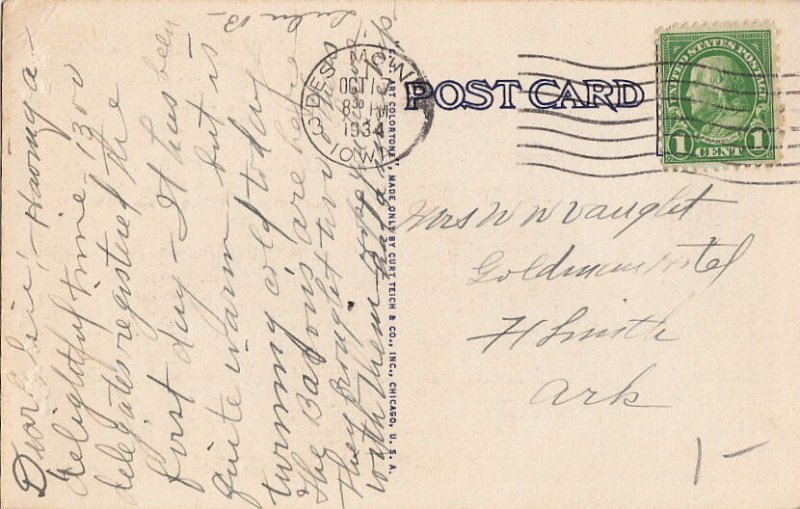 Dear :- Having a
delightful time, 1300
delegates registered the
first day - It has been
quite warm but is
turning cold today
The Batons are here
They brought two
with them
Lulu B-
DES MOINES
OCT
8 30 PM
1934
IOWA
3
POST CARD
UNITED STATES POSTAGE
FRANKLIN
1 CENT 1
Mrs W W Vaught
Goldman Hotel
Ft Smith
Ark
1-
ART COLORTONE", MADE ONLY BY CURT TEICH & CO., INC., CHICAGO, U. S. A.